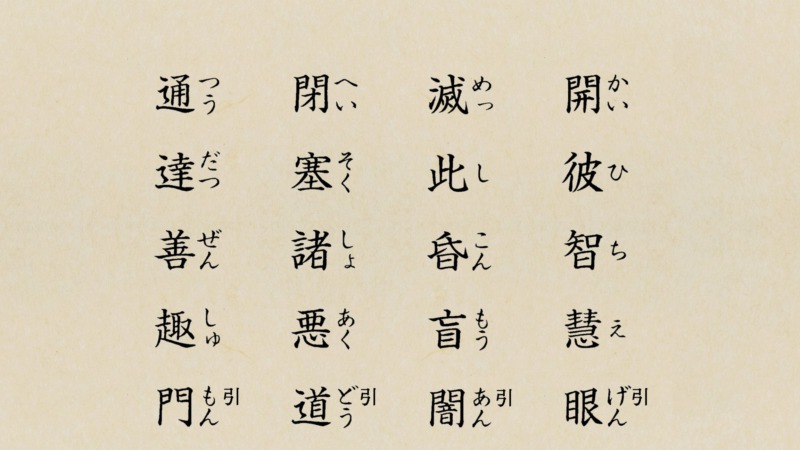 開かい彼ひ智ち慧え眼げん引
滅めっ此し昏こん盲もう闇あん引
閉へい塞そく諸しょ悪あく道どう引
通つう達だつ善ぜん趣しゅ門もん引